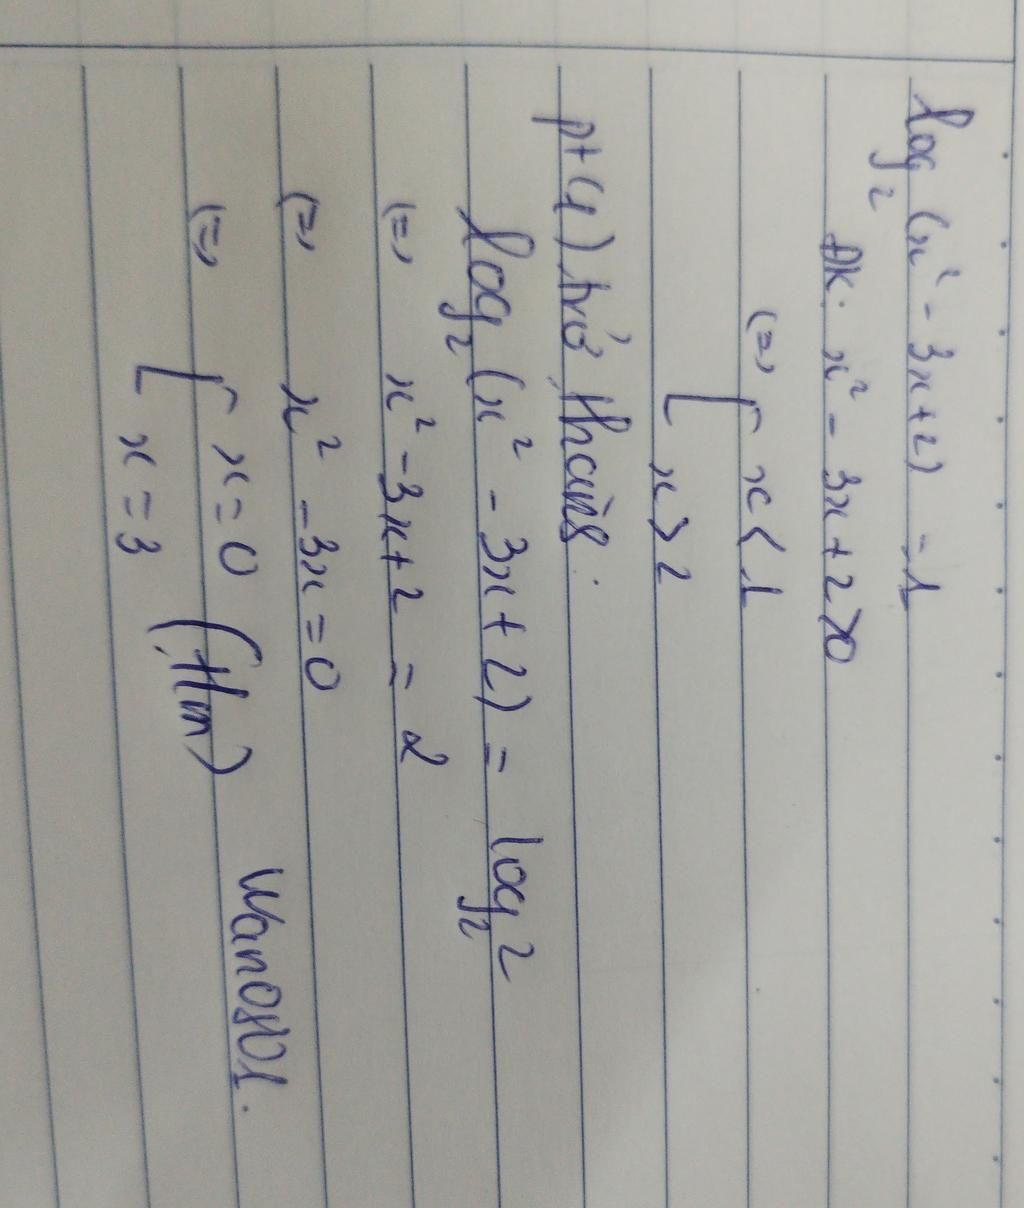 log₂(x² - 3x + 2) = 1
ĐK: x² - 3x + 2 > 0
(=) [ x < 1
x > 2
pt (1) trở thành:
log₂(x² - 3x + 2) = log₂2
(=) x² - 3x + 2 = 2
(=) x² - 3x = 0
(=) [ x = 0 (t/m)
x = 3
Wan0801.